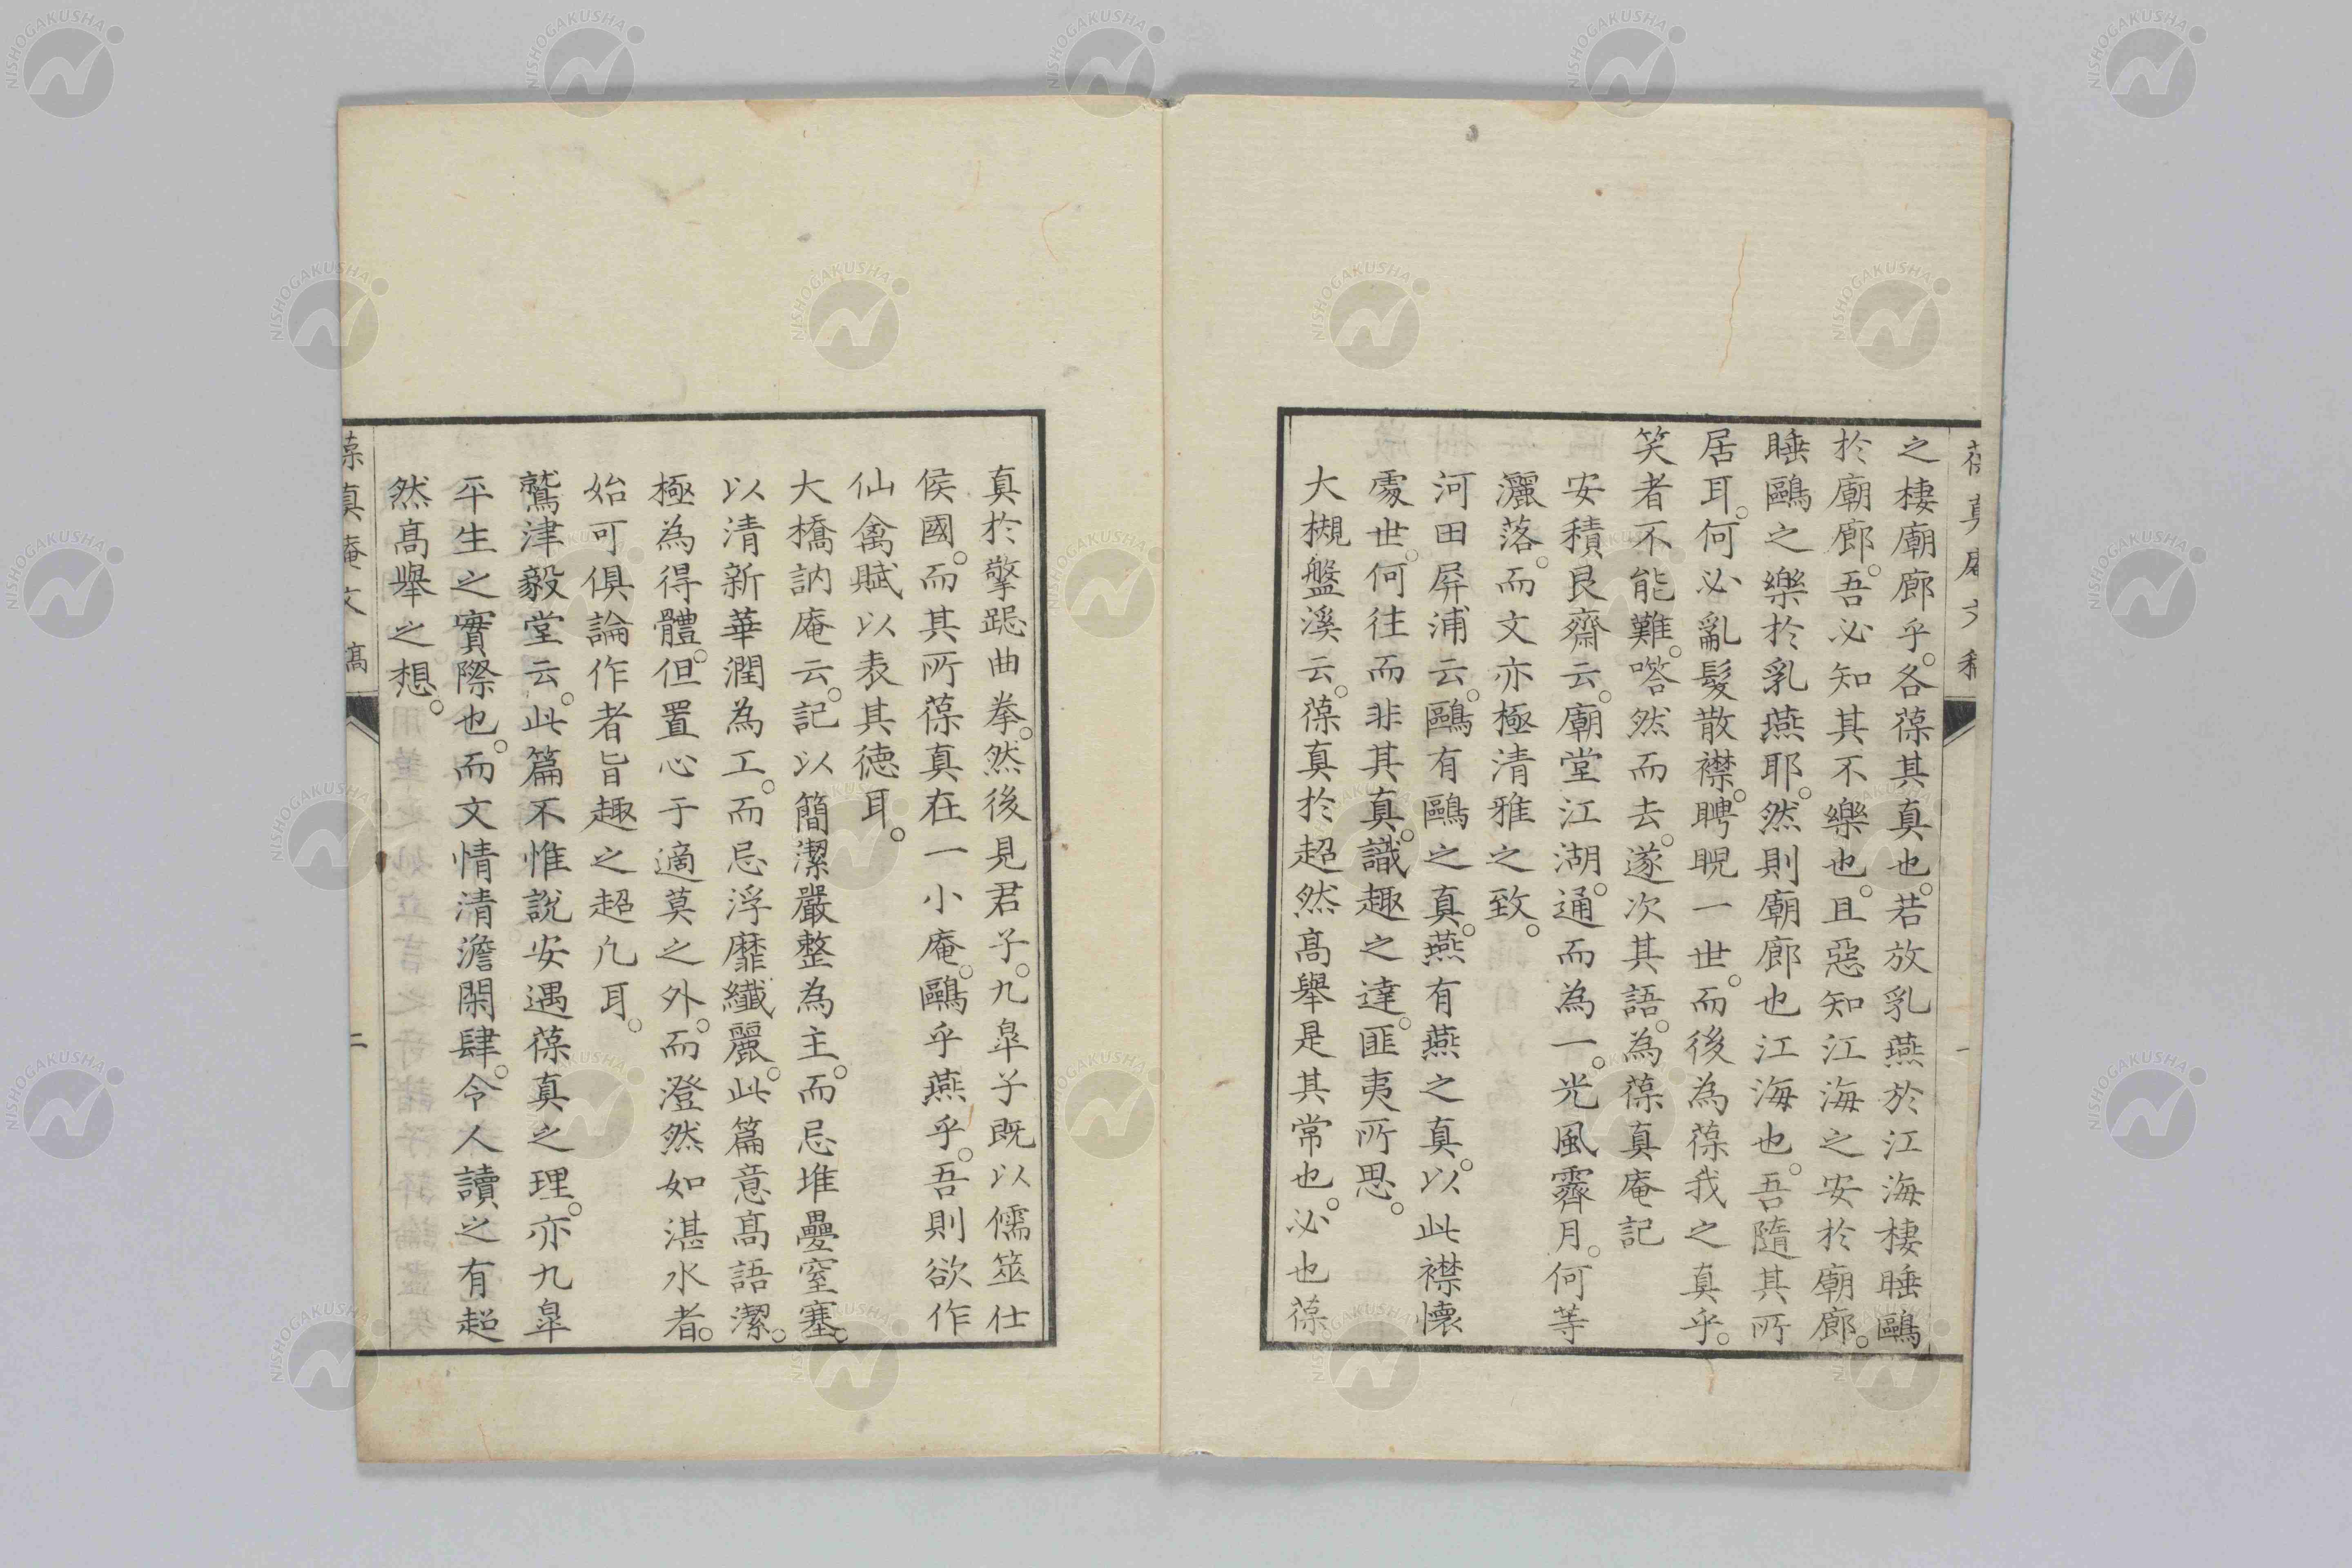 之棲廟廊乎。各葆其真也。若放乳燕於江海棲睡鷗
於廟廊。吾必知其不樂也。且惡知江海之安於廟廊。
睡鷗之樂於乳燕耶。然則廟廊也江海也。吾隨其所
居耳。何必亂髮散襟。聘睨一世。而後為葆我之真乎。
笑者不能難。嗒然而去。遂次其語。為葆真庵記
安積艮齋云。廟堂江湖。通而為一。光風霽月。何等
灑落。而文亦極清雅之致。
河田屏浦云。鷗有鷗之真。燕有燕之真。以此襟懷
處世。何往而非其真。識趣之達。匪夷所思。
大槻盤溪云。葆真於超然高舉是其常也。必也葆
真於擎跽曲拳。然後見君子。九皐子既以儒筮仕
侯國。而其所葆真在一小庵。鷗乎燕乎。吾則欲作
仙禽賦以表其德耳。
大橋訥庵云。記以簡潔嚴整為主。而忌堆疊窒塞。
以清新華潤為工。而忌浮靡纖麗。此篇意高語潔。
極為得體。但置心于適莫之外。而澄然如湛水者。
始可俱論作者旨趣之超凡耳。
鷲津毅堂云。此篇不惟說安遇葆真之理。亦九皐
平生之實際也。而文情清澹閑肆。令人讀之有超
然高舉之想。
葆真庵文稿
二
NISHOGAKUSHA